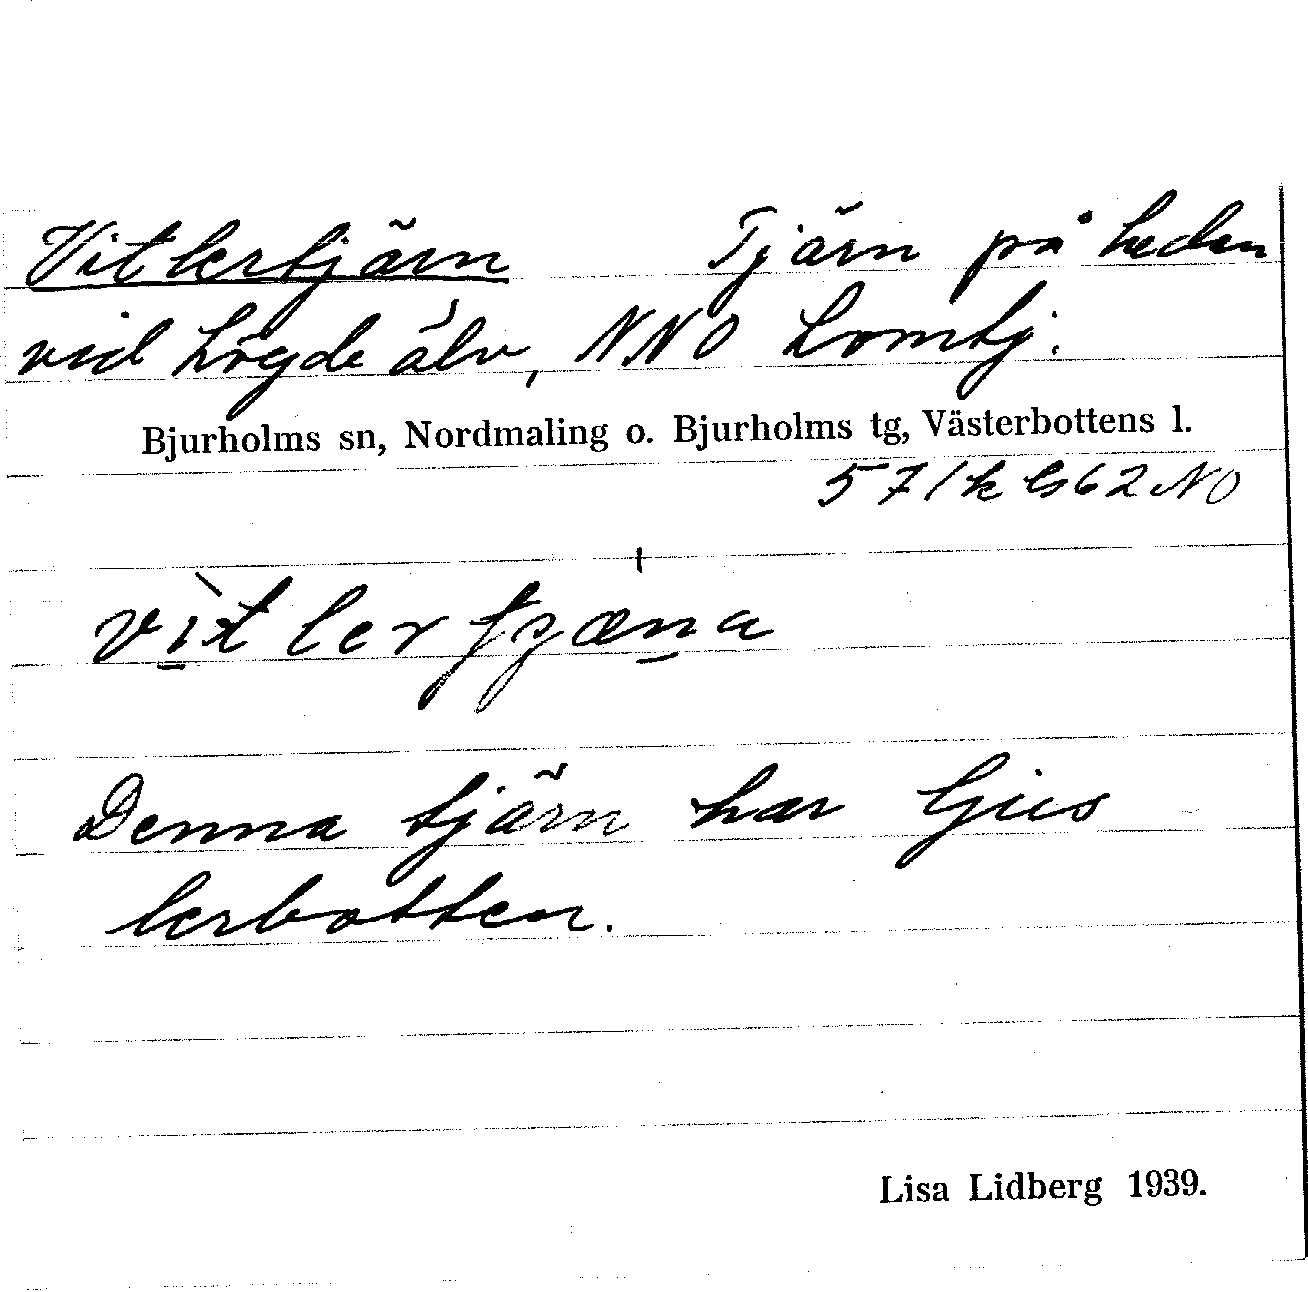 Vitlertjärn Tjärn på heden
vid Lögde älv, NNO Lomtj.
Bjurholms sn, Nordmaling o. Bjurholms tg, Västerbottens l.
571k Gs62 NO
Denna tjärn har ljus
lerbotten.
Lisa Lidberg 1939.